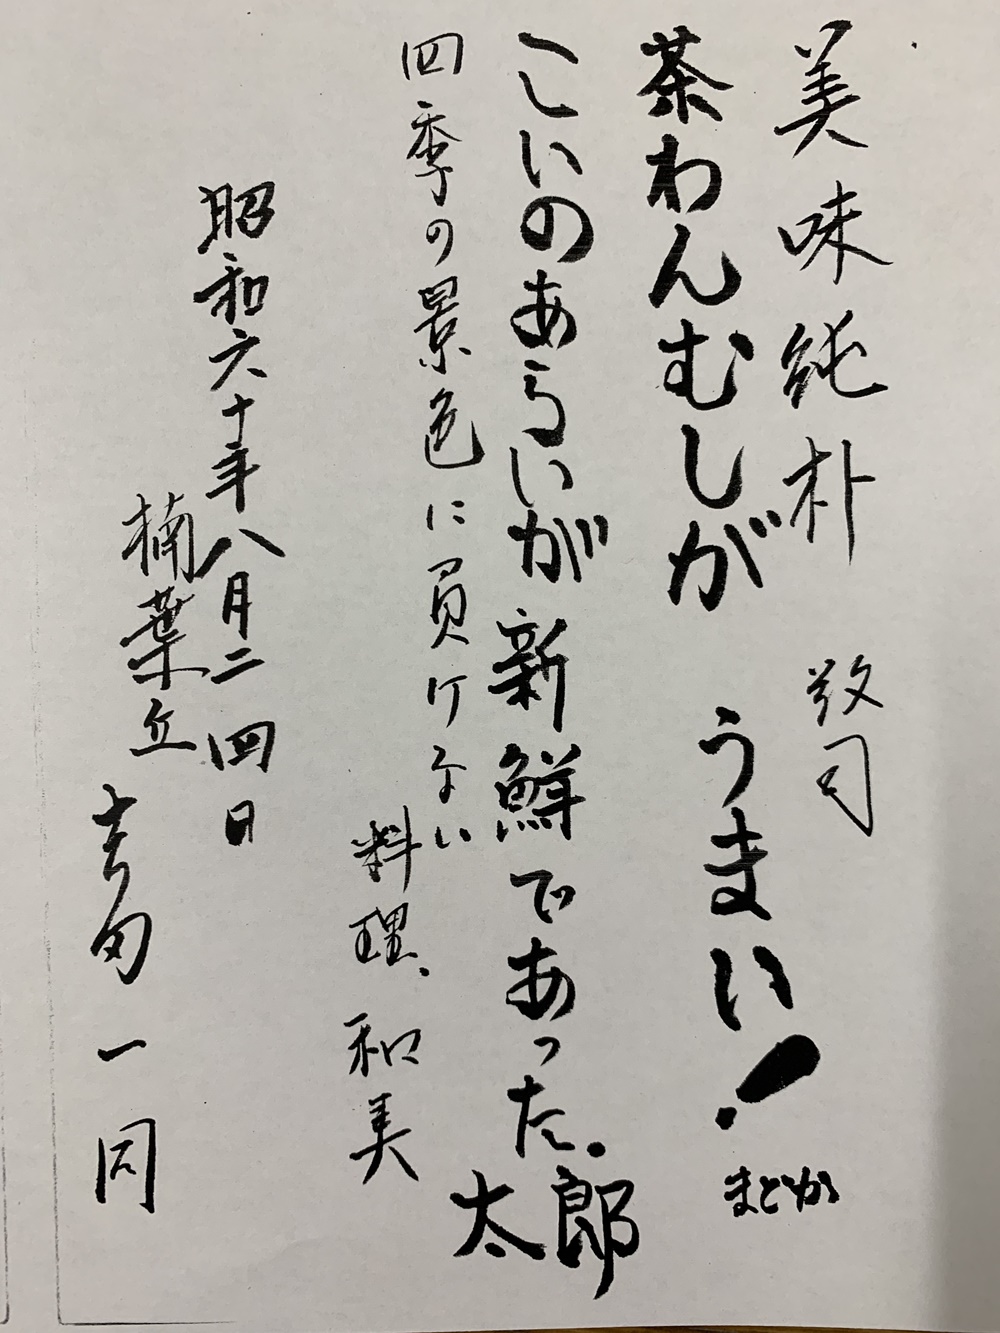 美味純朴 敬司
茶わんむしが うまい! まどか
こいのあらいが新鮮であった. 太郎
四季の景色に負けない
料理、和美
昭和六十年八月二四日
楠葉丘
一同